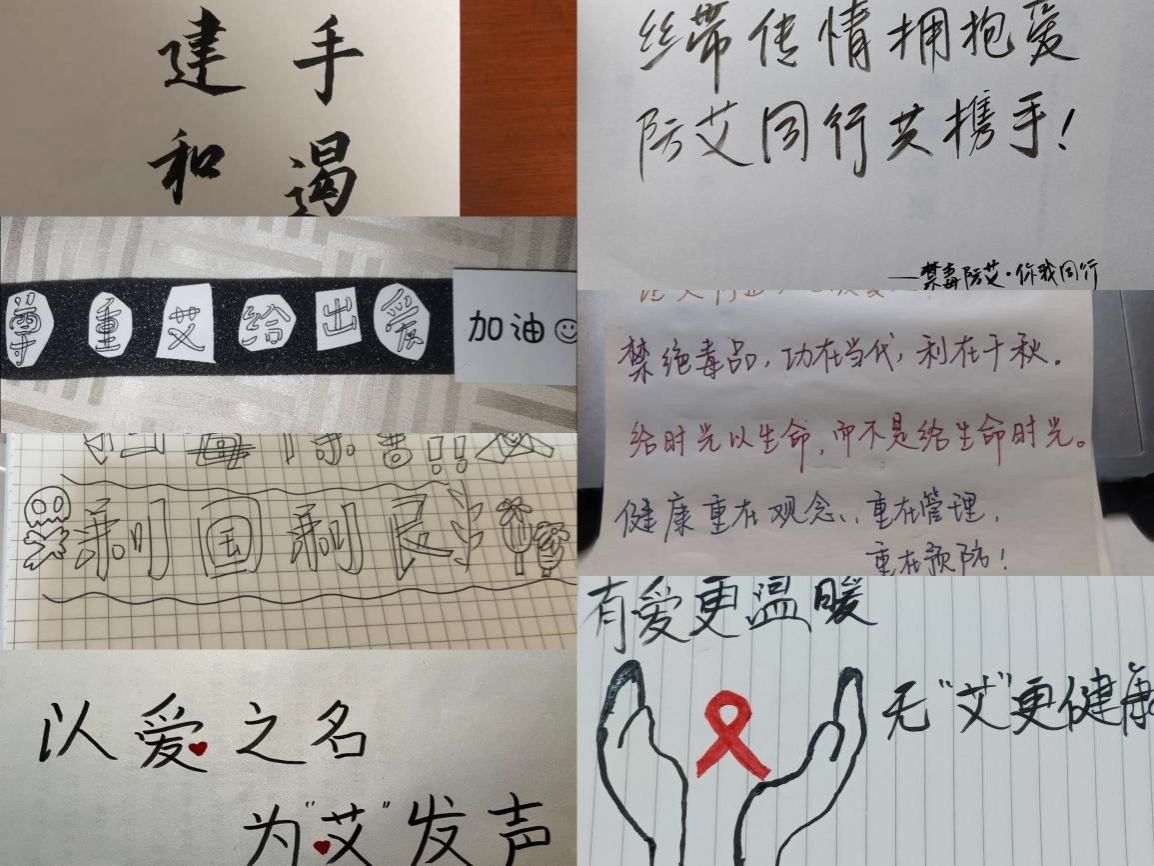 手遏
建和
丝带传情拥抱爱
防艾同行共携手!
——禁毒防艾·你我同行
尊重艾给出爱
加油
禁绝毒品,功在当代,利在千秋。
给时光以生命,而不是给生命时光。
健康重在观念,重在管理,
重在预防!
利国利民
有爱更温暖
无“艾”更健康
以爱之名
为“艾”发声